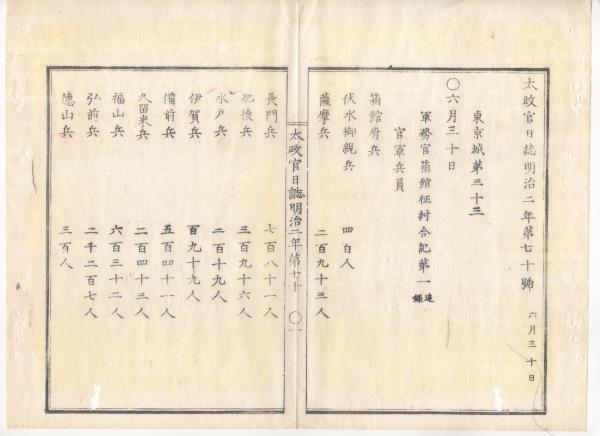 太政官日誌明治二年第七十號 六月三十日
東京城第三十三
〇六月三十日
軍務官箱館征討合記第一 追錄
官軍兵員
箱館府兵
伏水御親兵 四百人
薩摩兵 二百九十三人
太政官日誌明治二年第七十 〇一
長門兵 七百八十一人
肥後兵 三百九十六人
水戶兵 二百十九人
伊賀兵 百九十九人
備前兵 五百四十一人
久留米兵 二百四十三人
福山兵 六百三十二人
弘前兵 二千二百七人
德山兵 三百人